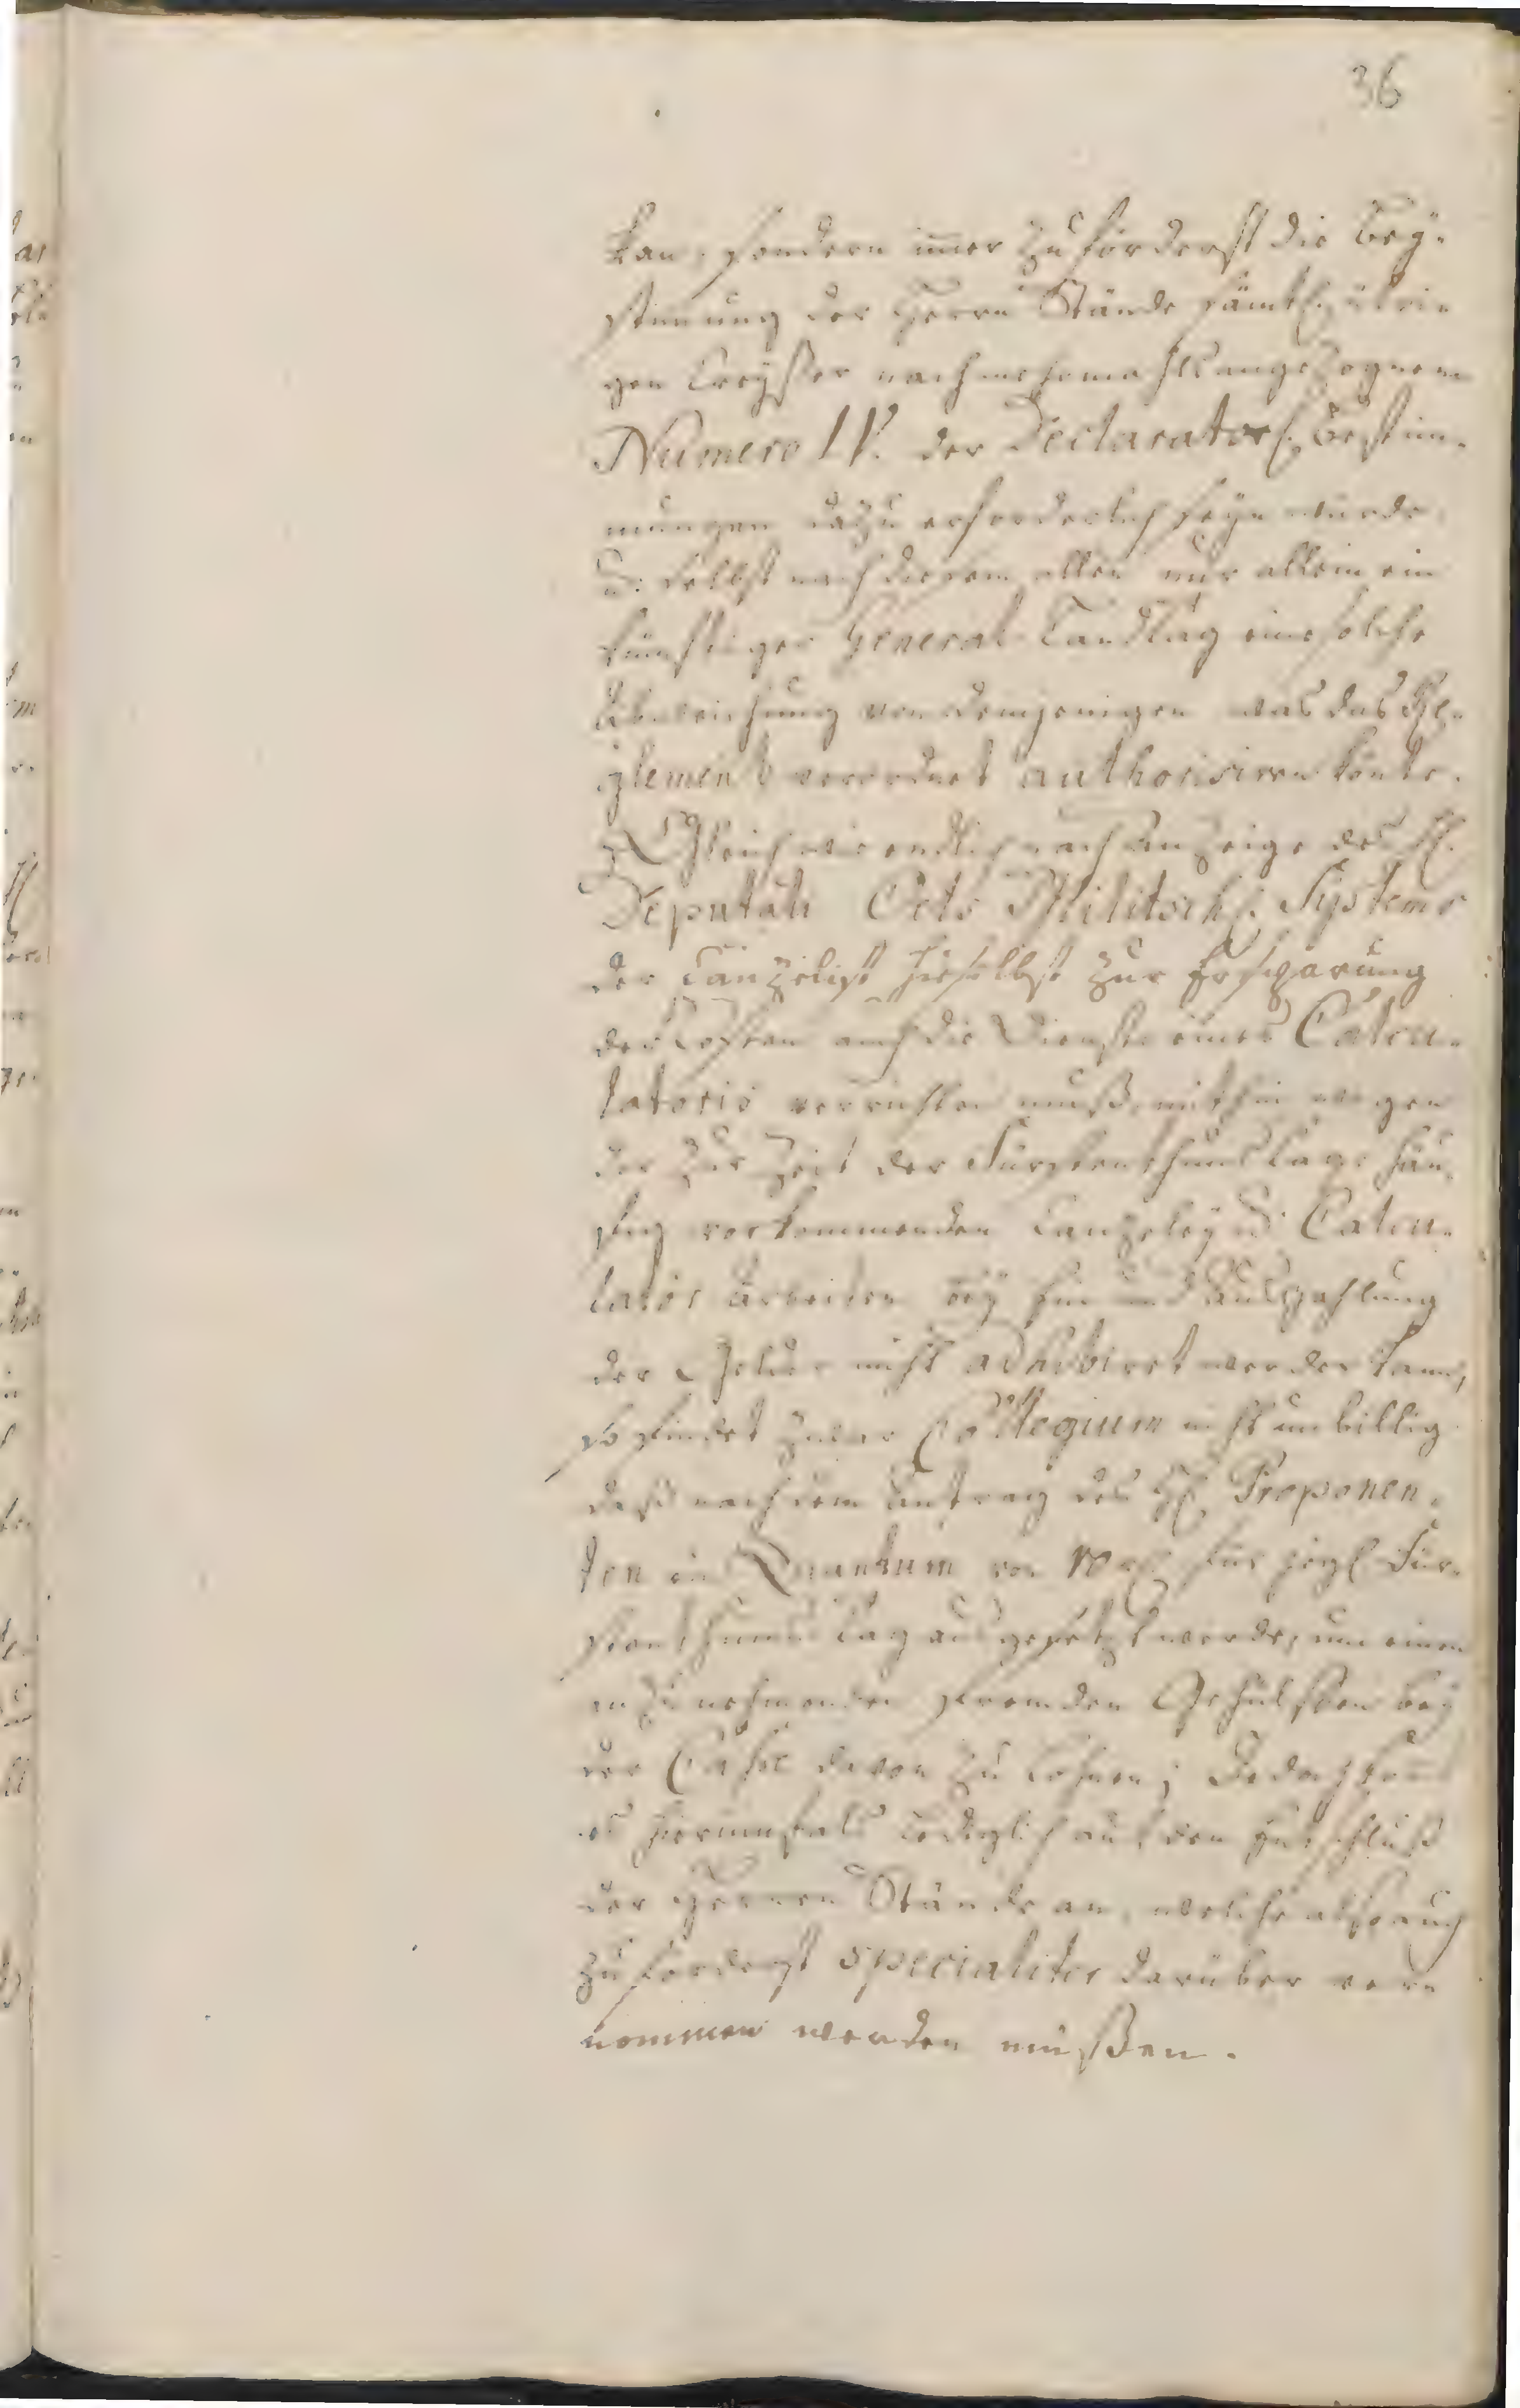 36
kan, sondern im̄er zuförderst die Bey-
stimmung der Herrn Stände sämtl. übri-
gen Creyßer nach mehrmahls angezognem
Numero IV. der Declaratorl. Bestim-
mungen dazu erforderlich seyn würde,
u: selbst nach diesem allen nur allein ein
künftiger General-Landtag eine solche
Abweichung von demjenigen was das Re-
glement verordnet authorisiren könte.
Gleichwie endlich nach Anzeige des H.
Deputati Oels Militschl. Systems
der Canzelist hieselbst zur Ersparung
der Costen auch die Dienste eines Calcu-
latoris verrichten muß, mithin wegen
der zur Zeit der Fürstenthums Tage häu-
fig vorkommenden Canzeley u: Calcu-
lator Arbeiten bey Ein und Auszahlung
der Gelder nicht adhibiret werden kann,
so findet zwar Collegium nicht unbillig
daß nach dem Antrag des H. Proponen-
ten ein Quantum von 10 rl. für jegl. Für-
stenthums Tag ausgesetzt werde, um einen
anzunehmenden fremden Gehülffen bey
der Casse davon zu lohnen; Jedoch kom̄t
es hierunfals lediglich auf den Entschluß
der Herren Stände an, welche also auch
zuförderst specialiter darüber ver-
nommen werden müßen.